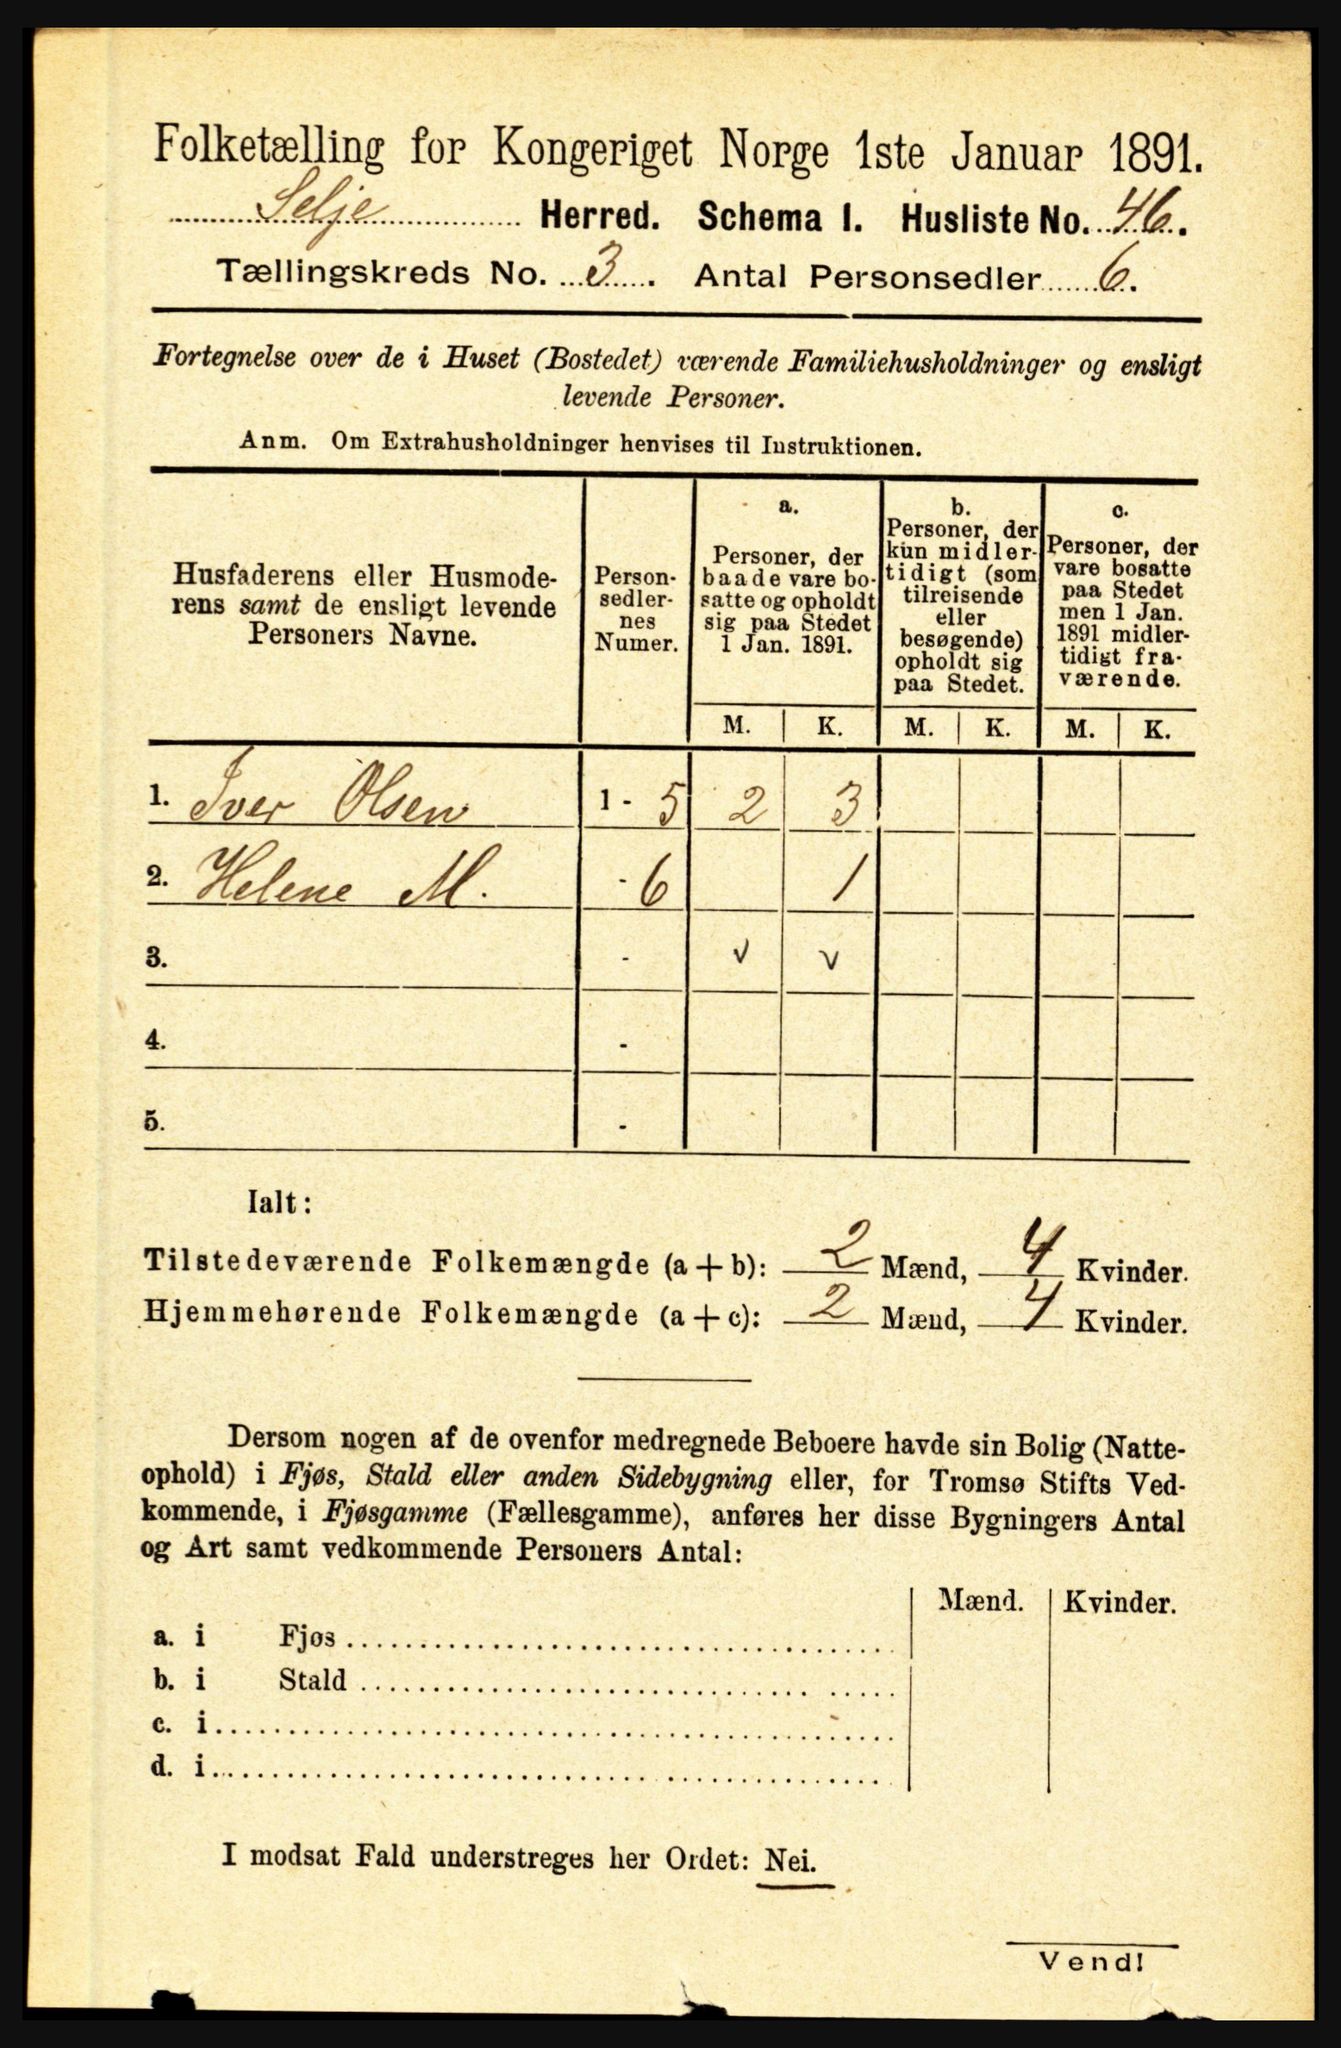 Folketælling for Kongeriget Norge 1ste Januar 1891.
Selje Herred. Schema I. Husliste No. 46.
Tællingskreds No. 3. Antal Personsedler 6.
Fortegnelse over de i Huset (Bostedet) værende Familiehusholdninger og ensligt
levende Personer.
Anm. Om Extrahusholdninger henvises til Instruktionen.
Husfaderens eller Husmode-
rens samt de ensligt levende
Personers Navne.
Person-
sedler-
nes
Numer.
a.
Personer, der
baade vare bo-
satte og opholdt
sig paa Stedet
1 Jan. 1891.
b.
Personer, der
kun midler-
tidigt (som
tilreisende
eller
besøgende)
opholdt sig
paa Stedet.
c.
Personer, der
vare bosatte
paa Stedet
men 1 Jan.
1891 midler-
tidigt fra-
værende.
M. K. M. K. M. K.
1. Iver Olsen 1 - 5 2 3
2. Helene M. - 6 1
3. - v v
4. -
5. -
Ialt:
Tilstedeværende Folkemængde (a + b): 2 Mænd, 4 Kvinder.
Hjemmehørende Folkemængde (a + c): 2 Mænd, 4 Kvinder.
Dersom nogen af de ovenfor medregnede Beboere havde sin Bolig (Natte-
ophold) i Fjøs, Stald eller anden Sidebygning eller, for Tromsø Stifts Ved-
kommende, i Fjøsgamme (Fællesgamme), anføres her disse Bygningers Antal
og Art samt vedkommende Personers Antal:
Mænd. Kvinder.
a. i Fjøs
b. i Stald
c. i
d. i
I modsat Fald understreges her Ordet: Nei.
Vend!